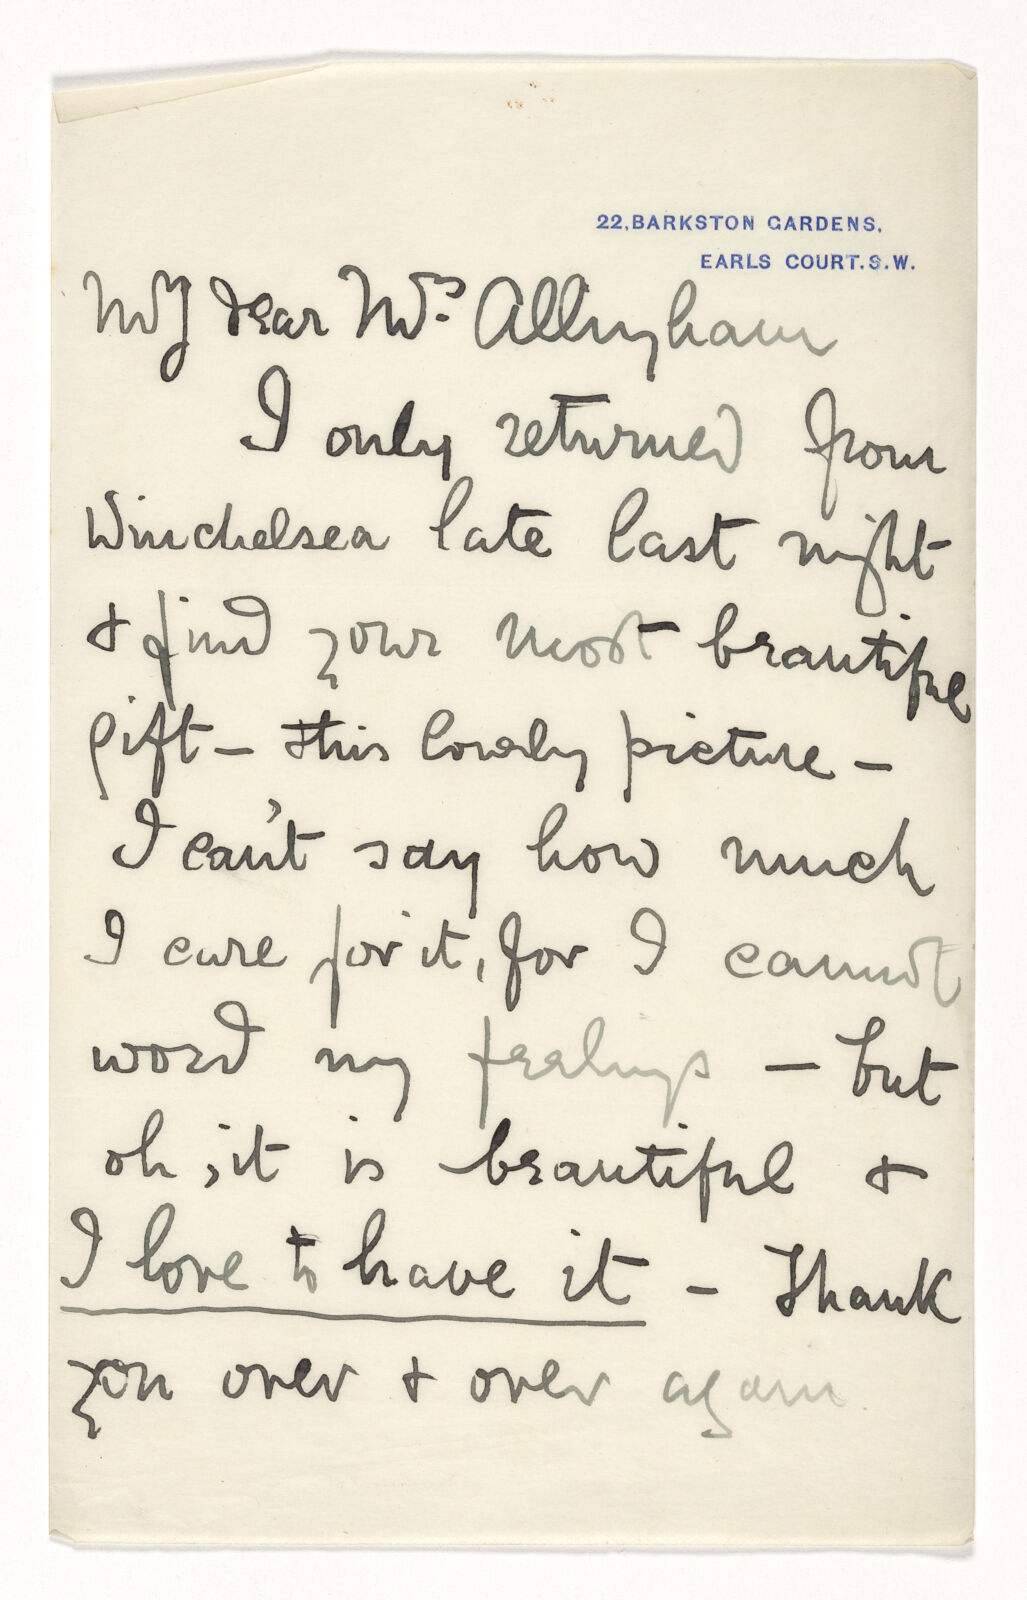 22, BARKSTON GARDENS,
EARLS COURT. S.W.
My dear Mrs. Allingham
I only returned from
Winchelsea late last night
& find your most beautiful
gift — this lovely picture —
I can't say how much
I care for it, for I cannot
word my feelings — but
oh, it is beautiful &
I love to have it — Thank
you over & over again